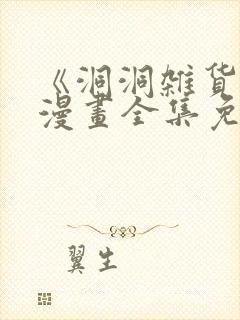 《洞洞雑货
漫畫全集免
翼生